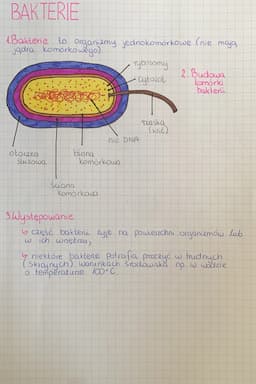 BAKTERIE
1. Bakterie to organizmy jednokomórkowe (nie mają
jądra komórkowego).
rybosomy
cytozol
2. Budowa
komórki
bakterii.
rzęska
(wić)
nić DNA
otoczka
śluzowa
błona
komórkowa
ściana
komórkowa
3. Występowanie
↳ część bakterii żyje na powierzchni organizmów lub
w ich wnętrzu,
↳ niektóre bakterie potrafią przeżyć w trudnych
(skrajnych) warunkach środowiska np. w wodzie
o temperaturze 100°C.